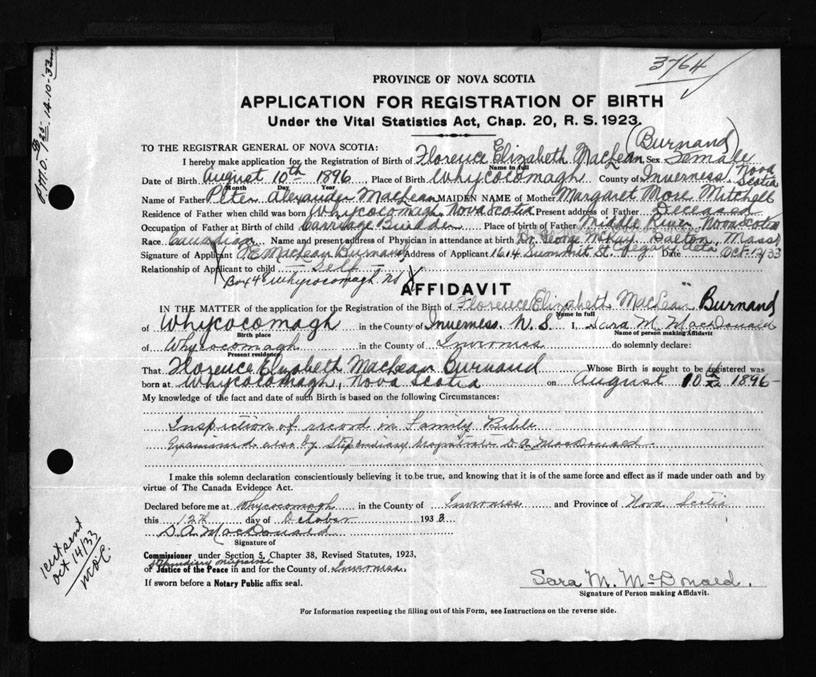 3764
PROVINCE OF NOVA SCOTIA
APPLICATION FOR REGISTRATION OF BIRTH
Under the Vital Statistics Act, Chap. 20, R. S. 1923.
TO THE REGISTRAR GENERAL OF NOVA SCOTIA:
(Burnand)
I hereby make application for the Registration of Birth of Florence Elizabeth MacLean Sex Female
Name in full
Date of Birth August 10th 1896 Place of Birth Whycocomagh County of Inverness Nova Scotia
Month Day Year
Name of Father Peter Alexander MacLean MAIDEN NAME of Mother Margaret Mitchell
Residence of Father when child was born Whycocomagh, Nova Scotia Present address of Father Deceased
Occupation of Father at Birth of child Carriage Builder Place of birth of Father Middle River, Nova Scotia
Race Canadian Name and present address of Physician in attendance at birth Dr. George Dalton, Mass.
Signature of Applicant F.E. MacLean Burnand Address of Applicant 1614 Summit St. Date Oct. 12/33
Relationship of Applicant to child Self
Box 4 Whycocomagh NS X
AFFIDAVIT
IN THE MATTER of the application for the Registration of the Birth of Florence Elizabeth MacLean Burnand
Name in full
of Whycocomagh in the County of Inverness. N. S. I, Sara M. MacDonald
Birth place Name of person making Affidavit
of Whycocomagh in the County of Inverness do solemnly declare:
Present residence
That Florence Elizabeth MacLean Burnand Whose Birth is sought to be registered was
born at Whycocomagh, Nova Scotia on August 10th 1896
My knowledge of the fact and date of such Birth is based on the following Circumstances:
Inspection of record in Family Bible
Examined also by Stipendiary Magistrate D. A. MacDonald.
I make this solemn declaration conscientiously believing it to be true, and knowing that it is of the same force and effect as if made under oath and by
virtue of The Canada Evidence Act.
Declared before me at Whycocomagh in the County of Inverness and Province of Nova Scotia
this 12th day of October 1933
D. A. MacDonald
Signature of
Commissioner under Section 5, Chapter 38, Revised Statutes, 1923,
Stipendiary Magistrate
or Justice of the Peace in and for the County of Inverness.
If sworn before a Notary Public affix seal.
Sara M. McDonald.
Signature of Person making Affidavit.
For Information respecting the filling out of this Form, see Instructions on the reverse side.
14-10-33
sent
Oct 14/33